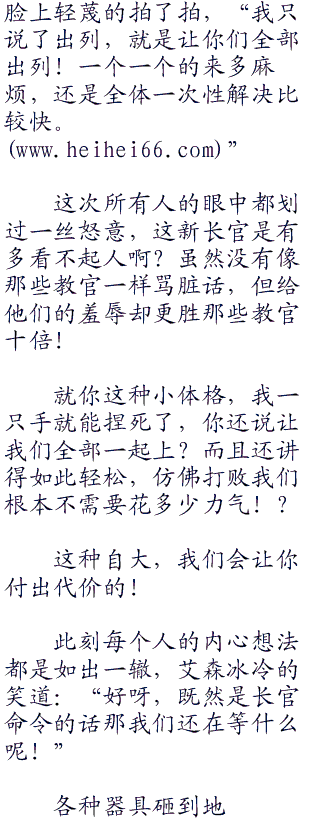 脸上轻蔑的拍了拍，“我只
说了出列，就是让你们全部
出列！一个一个的来多麻
烦，还是全体一次性解决比
较快。
(www.heihei66.com)”
这次所有人的眼中都划
过一丝怒意，这新长官是有
多看不起人啊？虽然没有像
那些教官一样骂脏话，但给
他们的羞辱却更胜那些教官
十倍！
就你这种小体格，我一
只手就能捏死了，你还说让
我们全部一起上？而且还讲
得如此轻松，仿佛打败我们
根本不需要花多少力气！？
这种自大，我们会让你
付出代价的！
此刻每个人的内心想法
都是如出一辙，艾森冰冷的
笑道：“好呀，既然是长官
命令的话那我们还在等什么
呢！”
各种器具砸到地